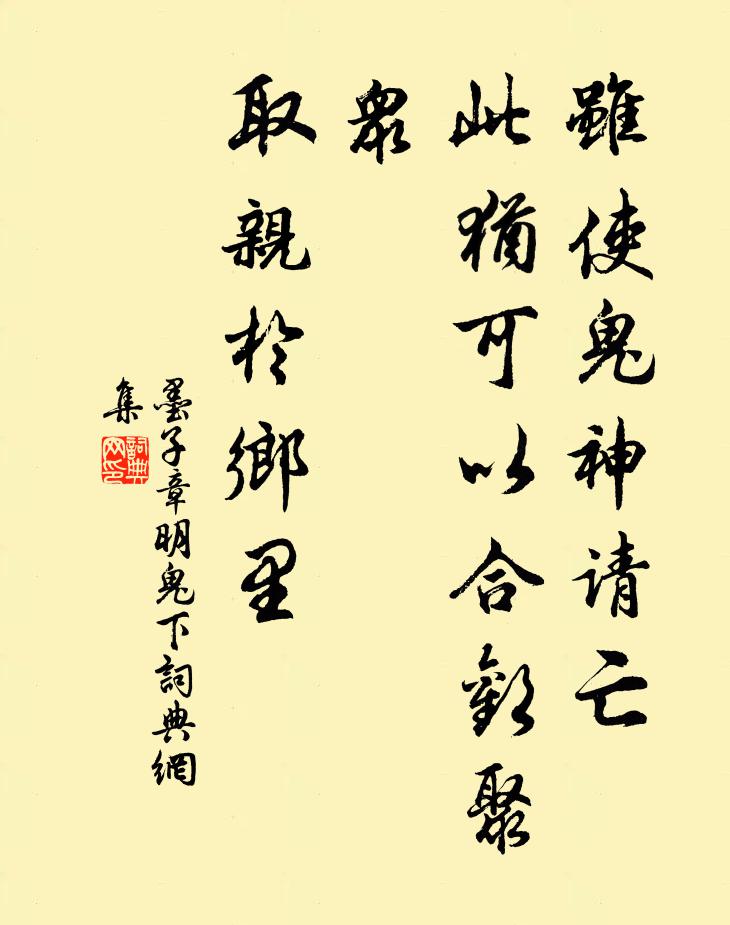 雖使鬼神请亡
此猶可以合歡聚
衆
取親於鄉里
墨子章明鬼下詞典網
集
詞典网印